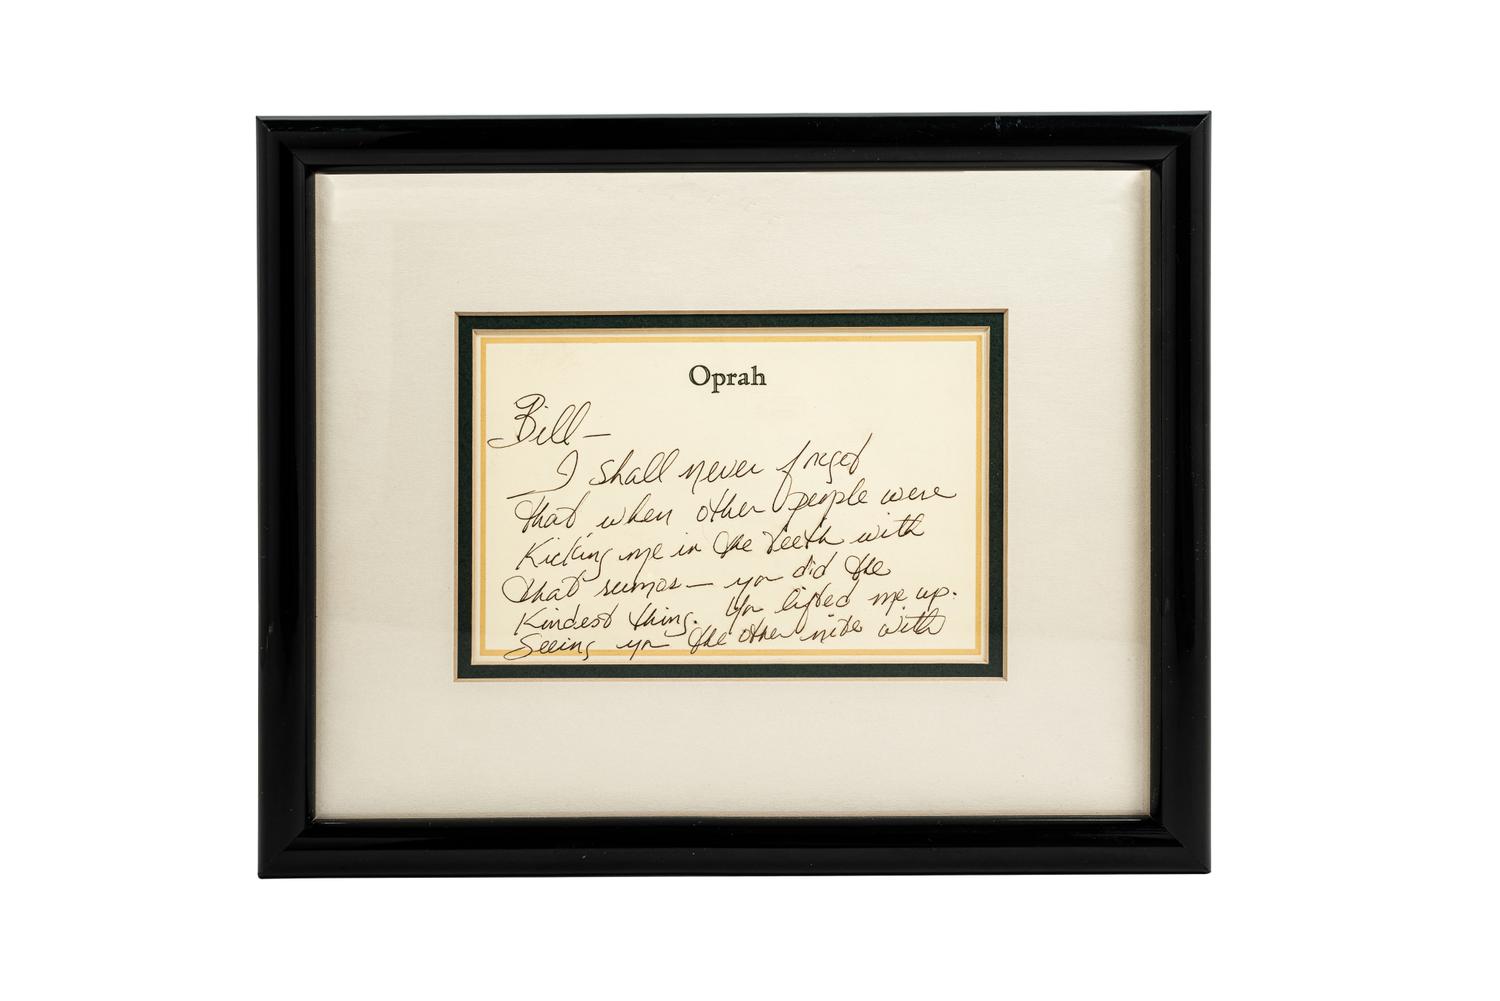 Oprah
Bill—
I shall never forget
that when other people were
kicking me in the teeth with
that rumor— you did the
kindest thing. You lifted me up.
Seeing you the other nite with